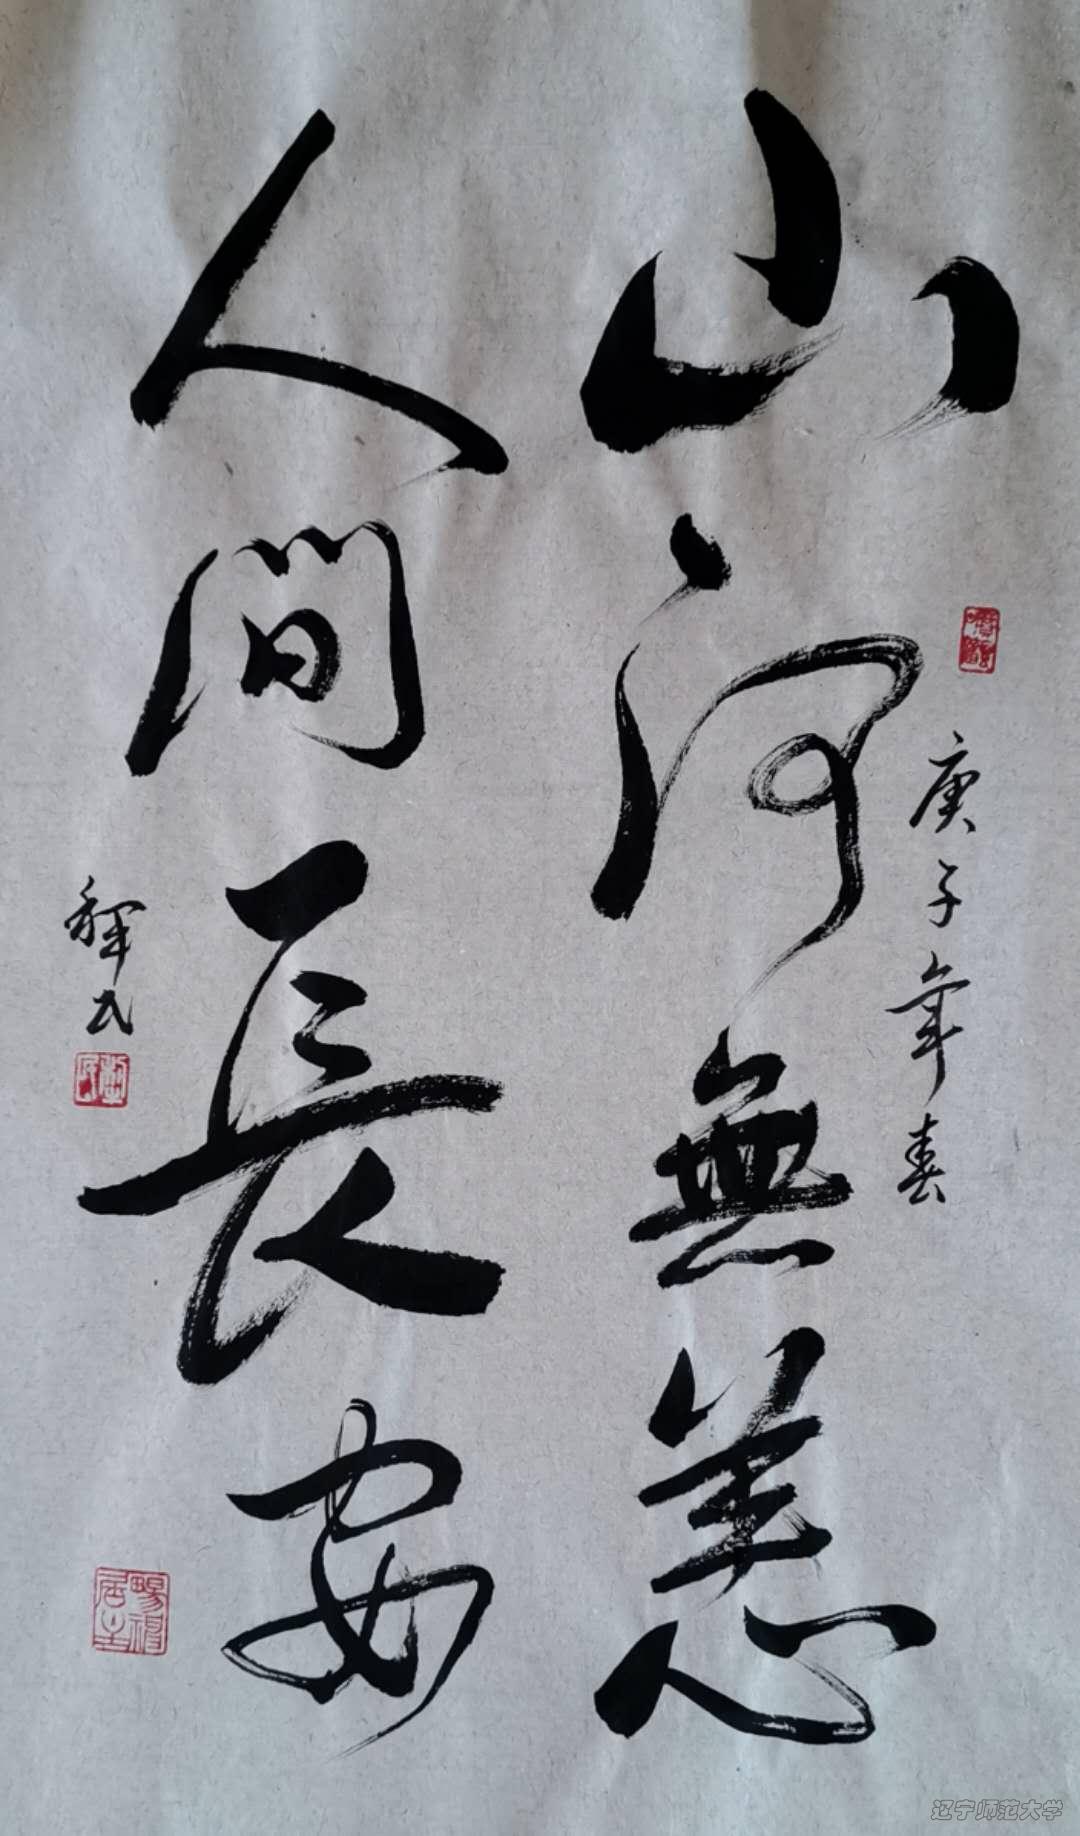 庚子年春
山河無恙
人間長安
辽宁师范大学